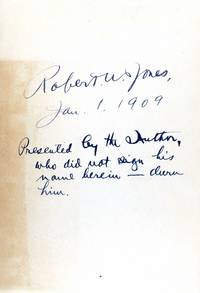 Robert W. Jones,
Jan. 1, 1909
Presented by the Author,
who did not sign his
name herein — durn
him.